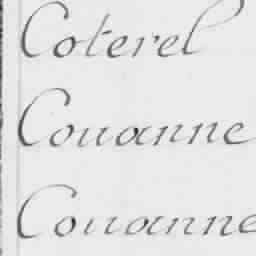 Coterel
Couanne
Couanne